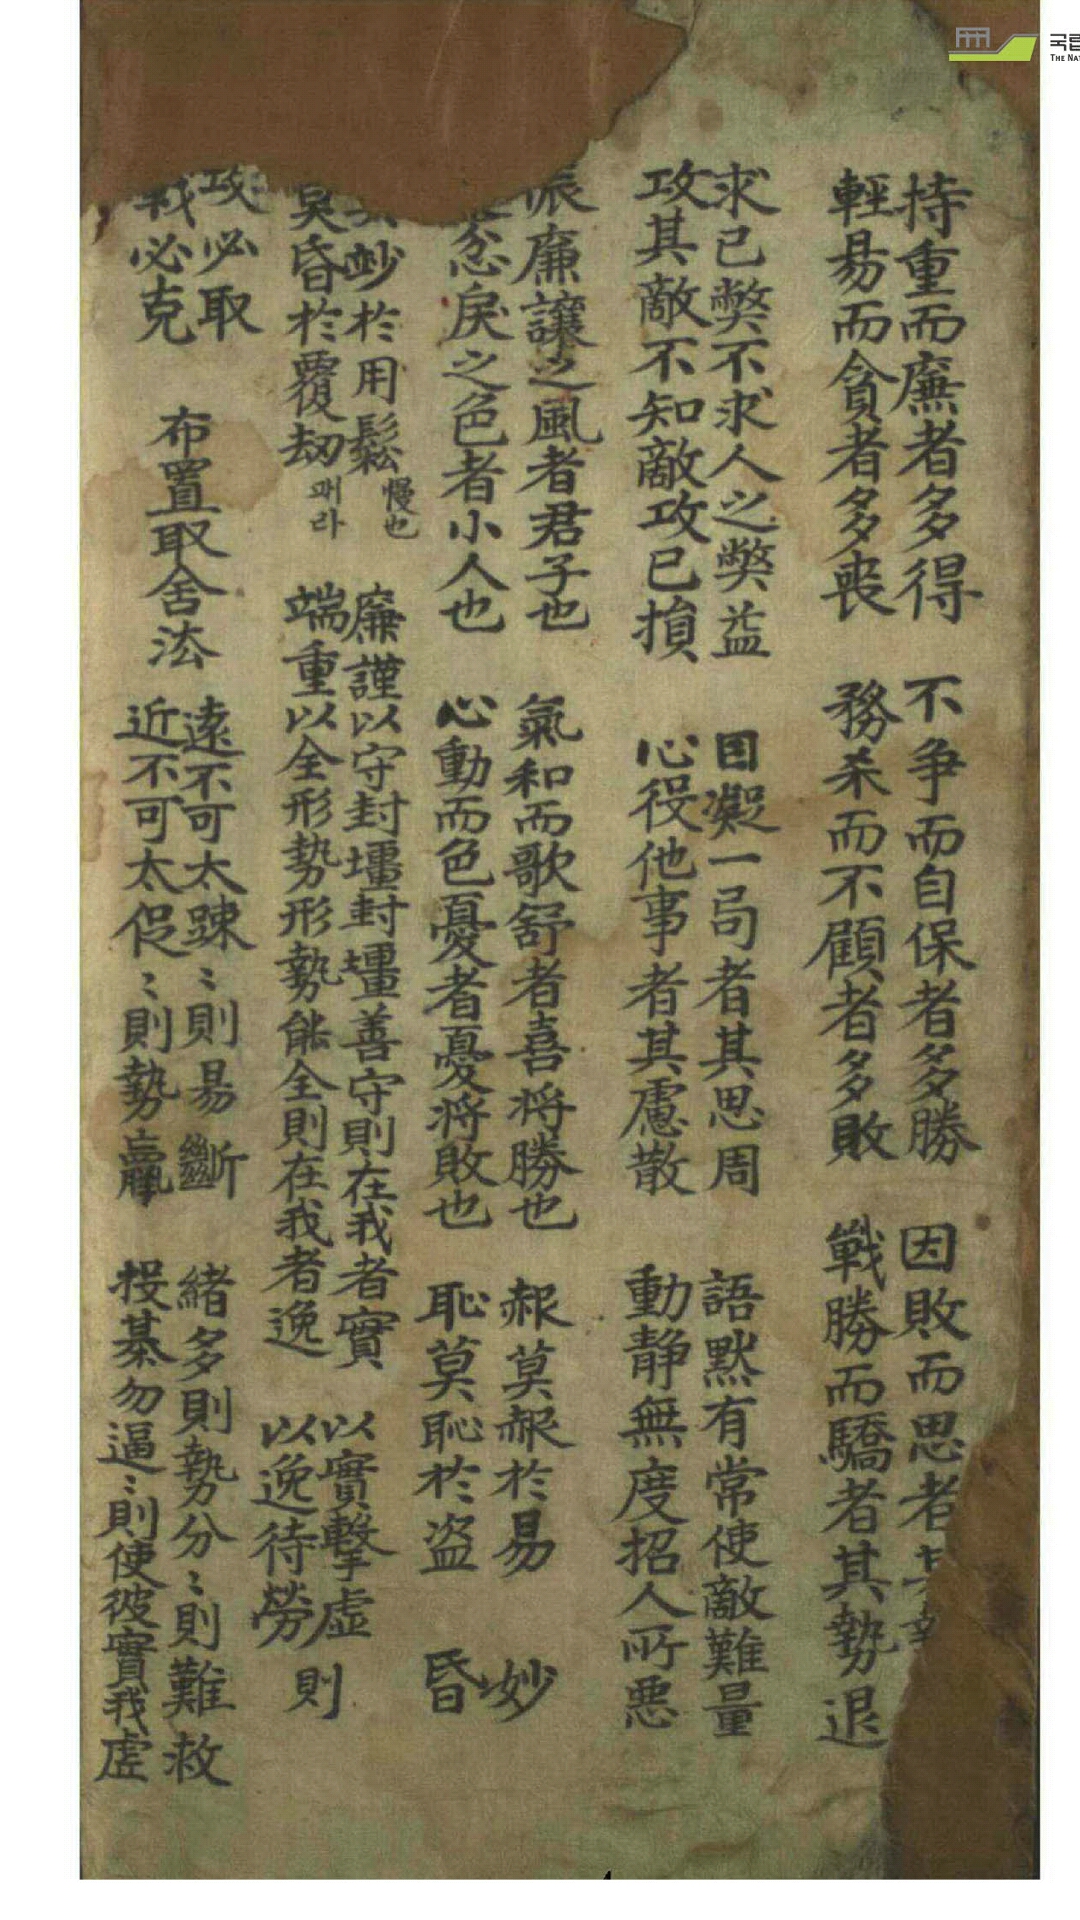 持重而廉者多得 不争而自保者多勝 因敗而思者其勢
輕易而貪者多喪 務杀而不顧者多敗 戰勝而驕者其勢退
求已弊不求人之弊益 目凝一局者其思周 語黙有常使敵難量
攻其敵不知敵攻已損 心役他事者其慮散 動静無度招人所悪
振廉讓之風者君子也 氣和而歌舒者喜将勝也 赧莫赧於易 妙
忿戾之色者小人也 心動而色憂者憂将敗也 恥莫恥於盗 昏
妙於用鬆 慢也 廉謹以守封壃封壃善守則在我者實 以實擊虚
莫昏於覆劫 패라 端重以全形勢形勢能全則在我者逸 以逸待勞 則
攻必取
戦必克
布置取舍法
遠不可太踈〻則易斷 緒多則勢分〻則難救
近不可太促〻則勢羸 投棊勿逼〻則使彼實我虛
국립
THE NAT